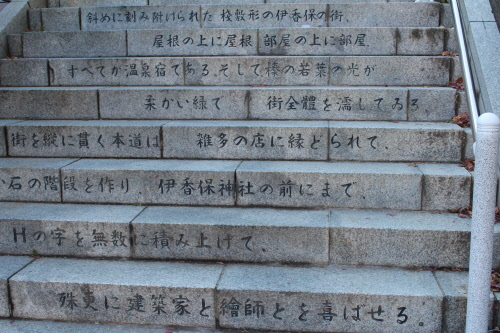 斜めに刻み附けられた桟敷形の伊香保の街、
屋根の上に屋根、部屋の上に部屋、
すべてが温泉宿である、そして榛の若葉の光が
柔かい緑で 街全體を濡してゐる。
街を縦に貫く本道は 雑多の店に縁どられて、
石の階段を作り、伊香保神社の前にまで、
Hの字を無數に積み上げて、
殊更に建築家と繪師とを喜ばせる。